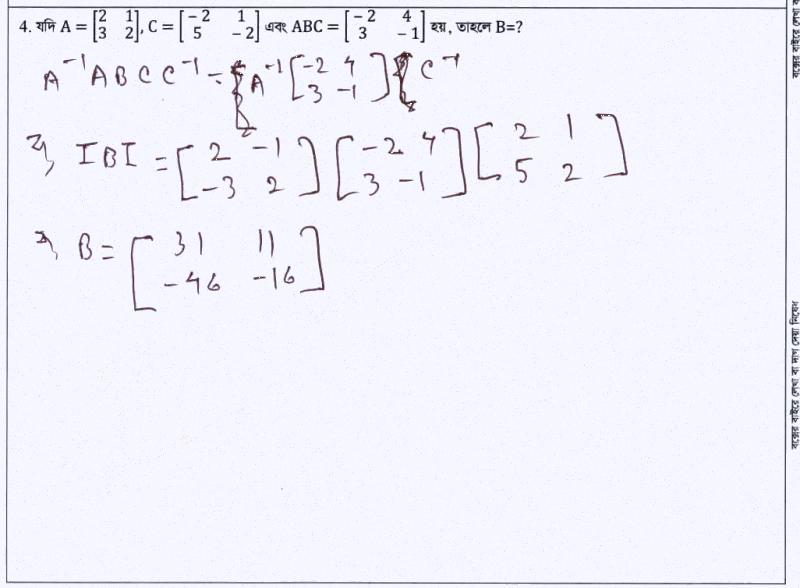 4. যদি A = [2 1; 3 2], C = [-2 1; 5 -2] এবং ABC = [-2 4; 3 -1] হয়, তাহলে B=?
A⁻¹ A B C C⁻¹ = A⁻¹ [-2 4; 3 -1] C⁻¹
বা, I B I = [2 -1; -3 2] [-2 4; 3 -1] [2 1; 5 2]
বা, B = [31 11; -46 -16]
বক্সের বাইরে লেখা বা দাগ দেয়া নিষেধ
বক্সের বাইরে লেখা ব